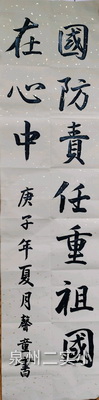 國防責任重祖國
在心中
庚子年夏月馨童書
泉州二实小